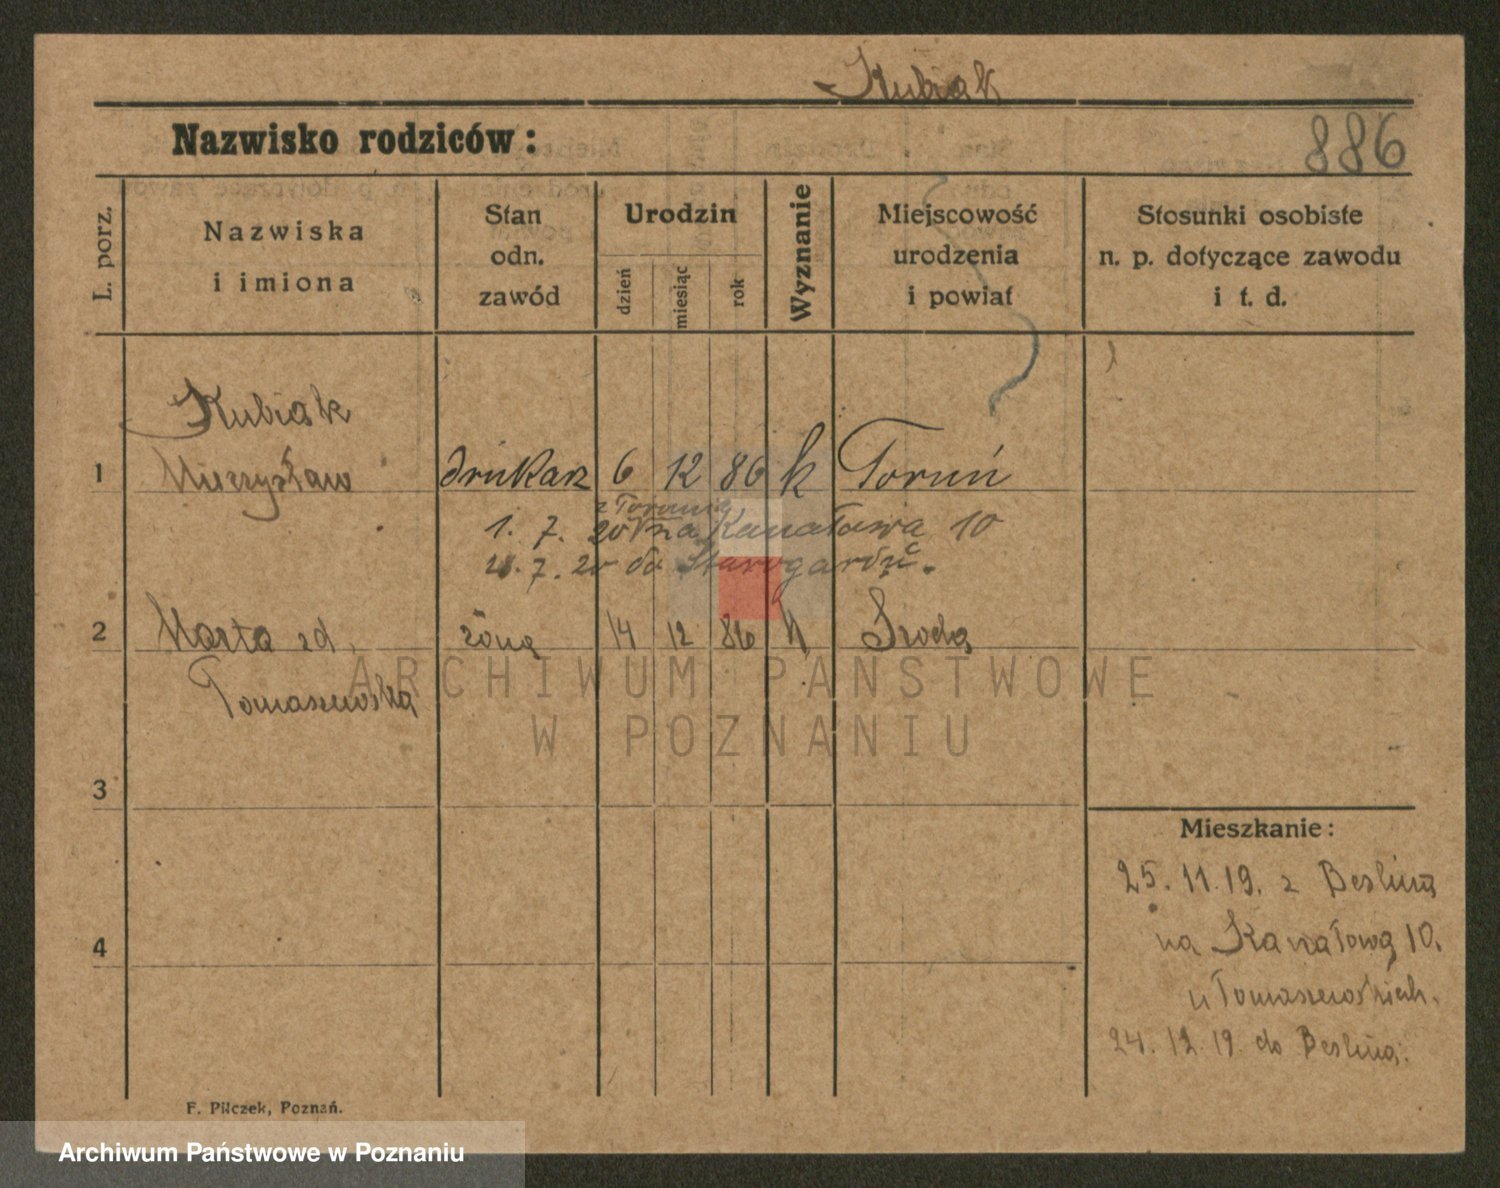 Kubiak
Nazwisko rodziców:
886
L. porz.
Nazwiska
i imiona
Stan
odn.
zawód
Urodzin
dzień
miesiąc
rok
Wyznanie
Miejscowość
urodzenia
i powiat
Stosunki osobiste
n. p. dotyczące zawodu
i t. d.
Kubiak
1 Mieczysław drukarz 6 12 86 k Toruń
z Torunia
1. 7. 20 na Kanałowa 10
7. 20 do Starogardu.
2 Marta zd. żona 14 12 86 k Środa
Tomaszewska
3
Mieszkanie:
25. 11. 19. z Berlina
na Kanałową 10.
4
u Tomaszewskich.
24. 12. 19. do Berlina.
F. Pilczek, Poznań.
ARCHIWUM PAŃSTWOWE
W POZNANIU
Archiwum Państwowe w Poznaniu